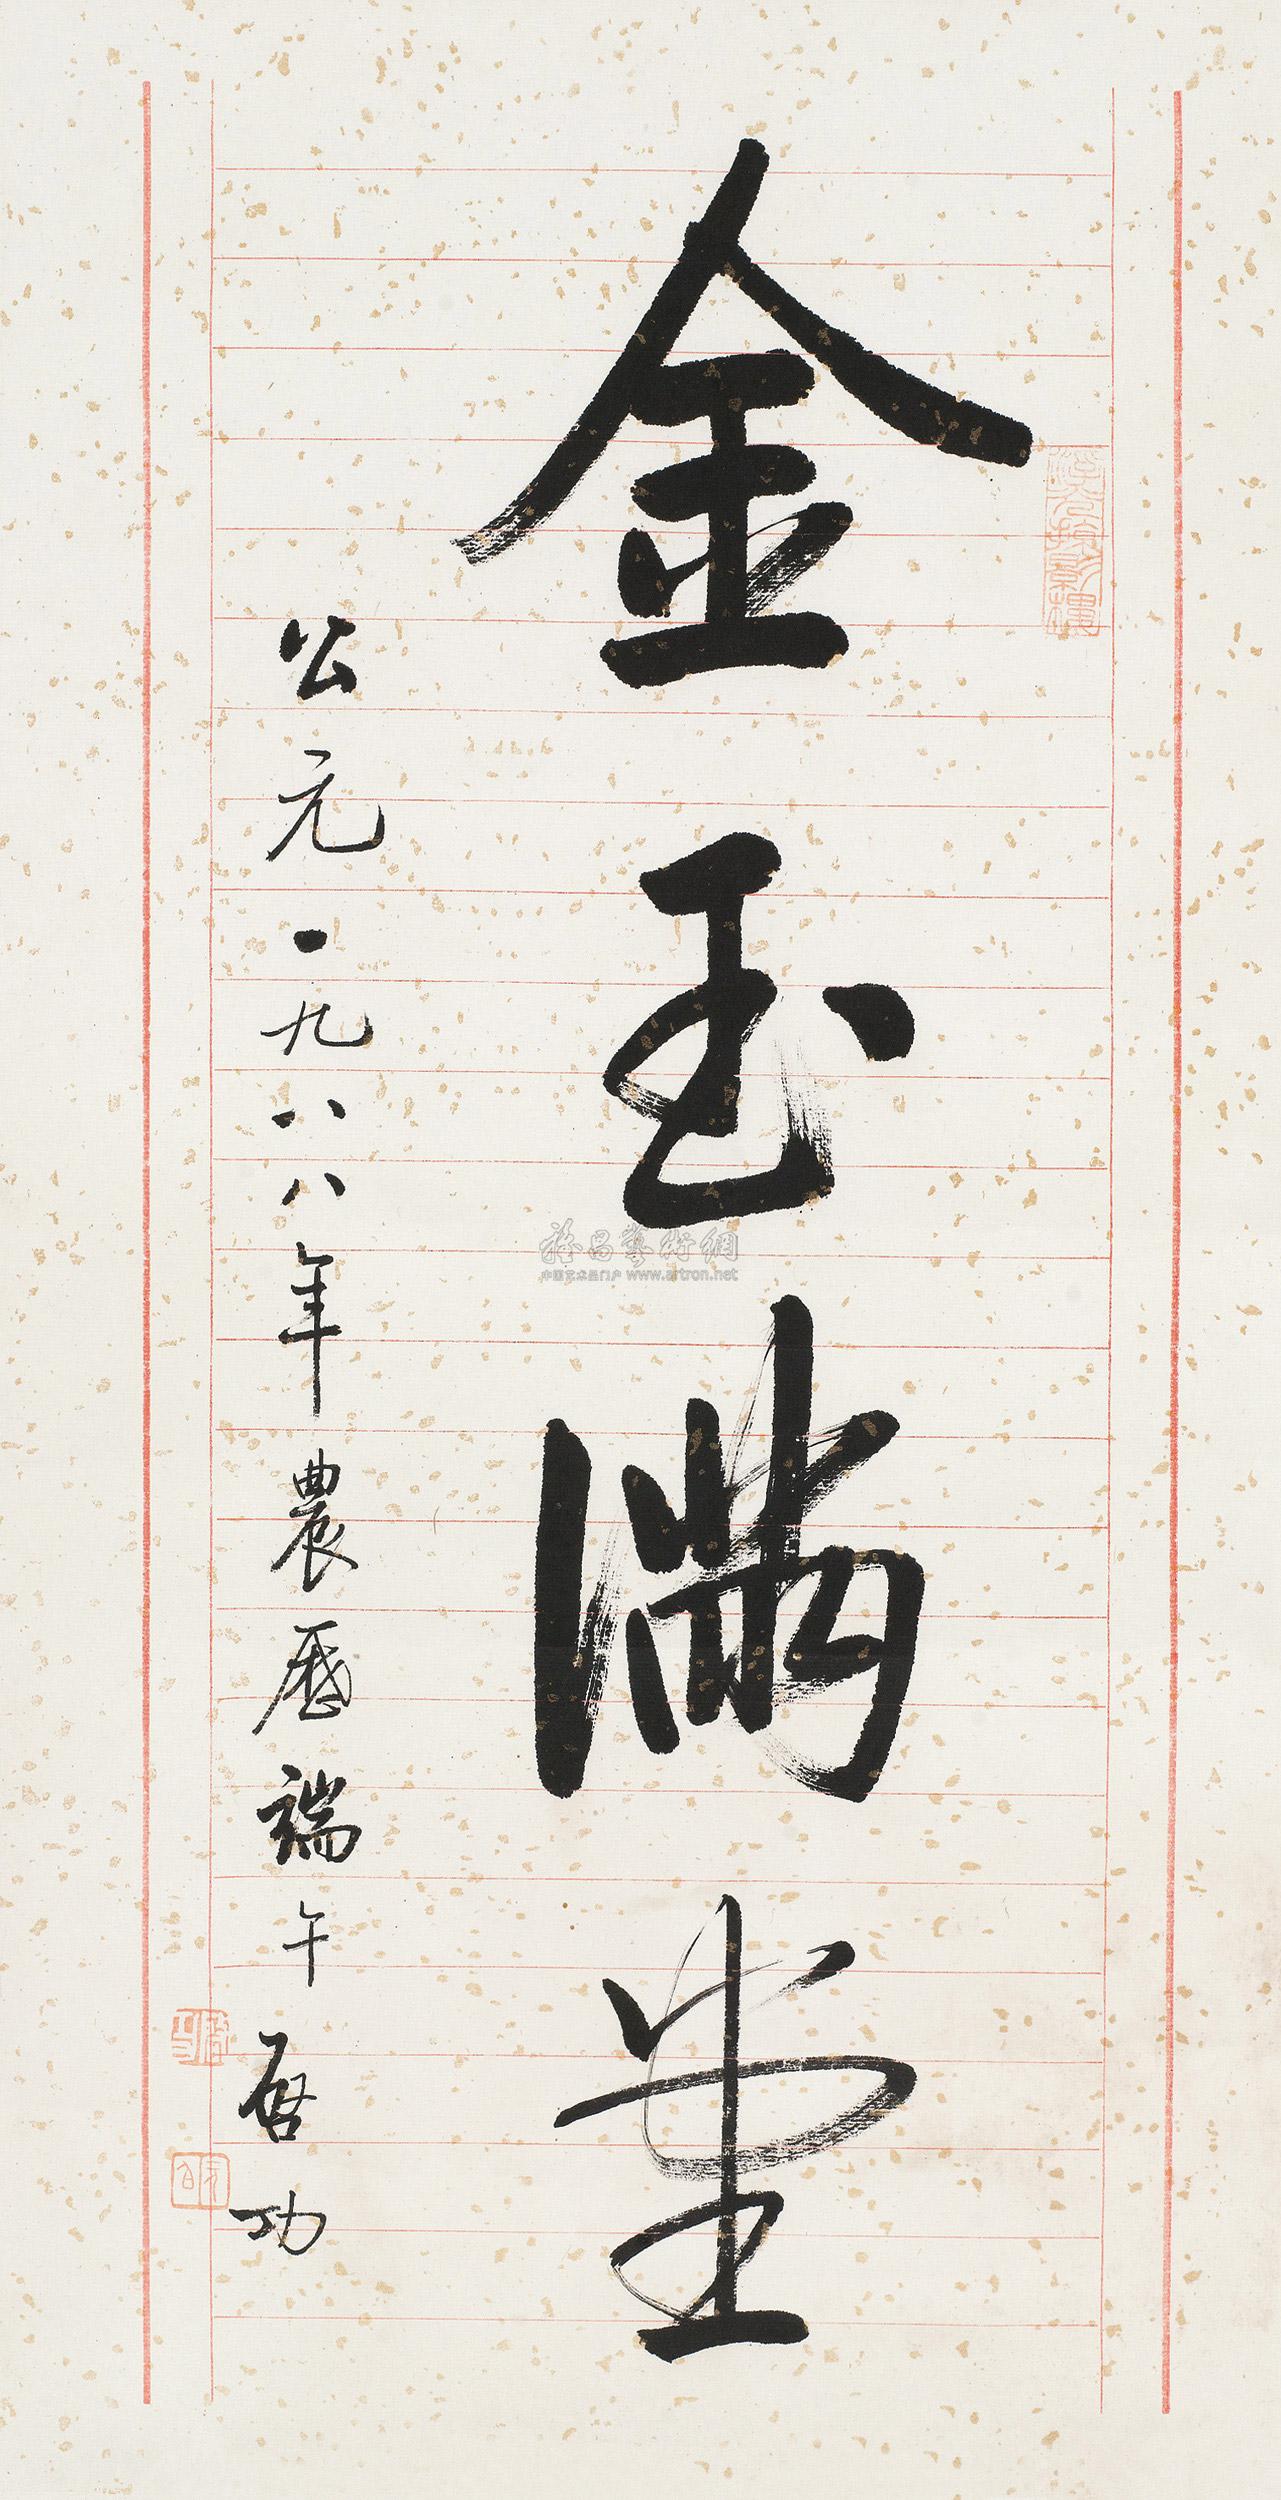 金玉满堂
公元一九八八年農歷端午 启功
雅昌藝術網
中国艺术品门户 www.artron.net